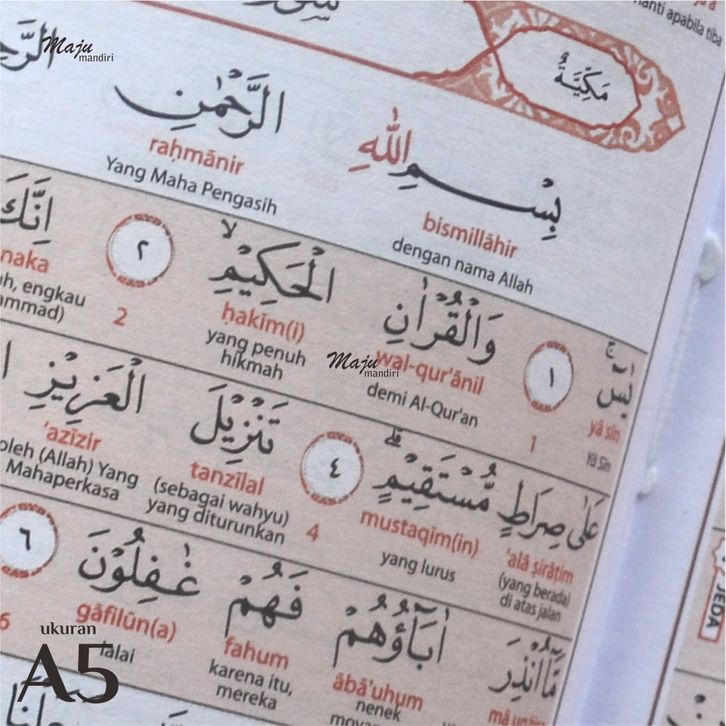 nanti apabila tiba
مَكِّيَّةٌ
بِسْمِ اللّٰهِ الرَّحْمٰنِ
bismillāhir raḥmānir
dengan nama Allah Yang Maha Pengasih
يٰسۤ ۚ ١ وَالْقُرْاٰنِ الْحَكِيْمِۙ ٢ اِنَّكَ
yā sīn wal-qur'ānil ḥakīm(i) naka
Yā Sīn 1 demi Al-Qur'an yang penuh hikmah 2 engkau
عَلٰى صِرَاطٍ مُّسْتَقِيْمٍۗ ٤ تَنْزِيْلَ الْعَزِيْزِ
'alā ṣirāṭim mustaqīm(in) tanzīlal 'azīzir
(yang berada) di atas jalan yang lurus 4 (sebagai wahyu) yang diturunkan oleh (Allah) Yang Mahaperkasa
مَّآ اُنْذِرَ اٰبَاۤؤُهُمْ فَهُمْ غٰفِلُوْنَ ٦
ābā'uhum fahum gāfilūn(a)
nenek karena itu, mereka lalai 6
JEDA
Maju mandiri
Maju mandiri
ukuran
A5